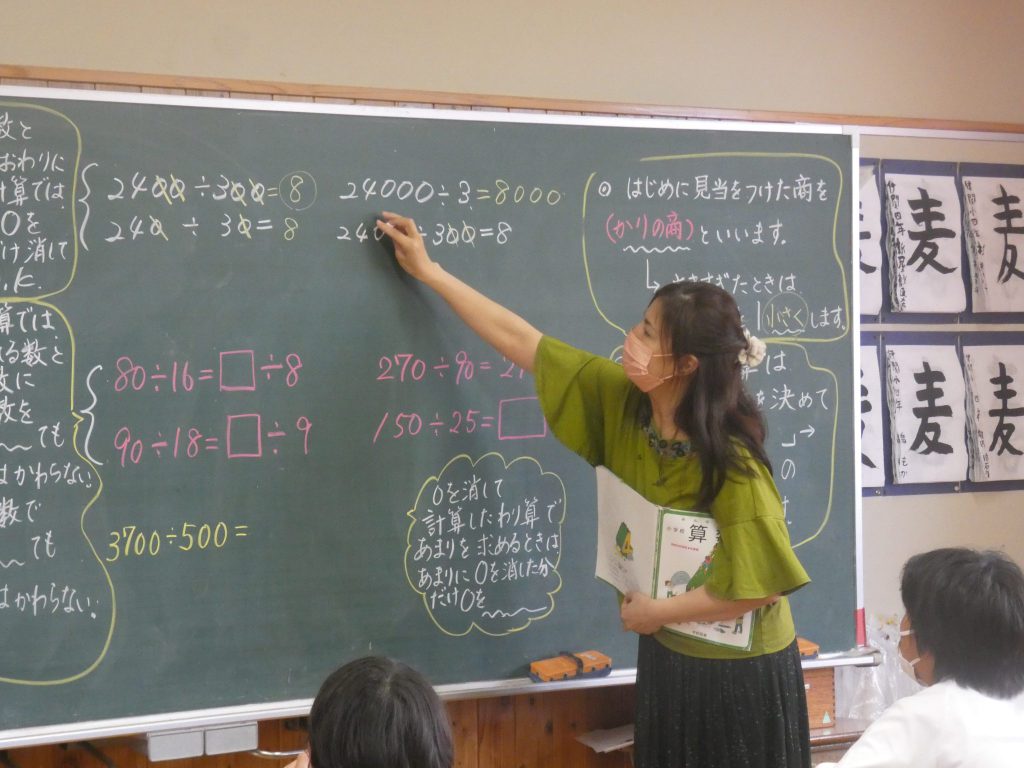 数と
おわりに
計算では
0を
け消して
O.K.
算では
る数と
数に
数を
ても
はかわらない。
数で
ても
はかわらない。
2400÷300=8
240÷30=8
24000÷3=8000
÷300=8
80÷16=□÷8
90÷18=□÷9
270÷90=
150÷25=□
3700÷500=
0を消して
計算したわり算で
あまりを求めるときは
あまりに0を消した分
だけ0を
◎ はじめに見当をつけた商を
(かりの商)といいます。
ときは
小さくします。
は
を決めて
の
は
小学校
算
麦
麦
麦
麦